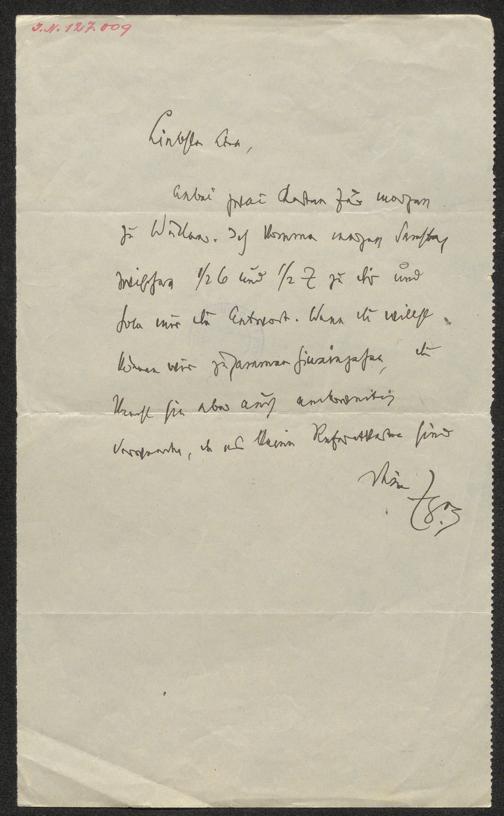 I.N. 127.009
Liebster Leo,
anbei zwei Karten für morgen
zu Wüllner. Ich komme morgen Samstag
zwischen 1/2 6 und 1/2 7 zu dir und
hole mir die Antwort. Wenn du willst,
können wir zusammen hineingehen, du
kannst sie aber auch anderweitig
verwenden, da es keine Referatkarten sind
Dein